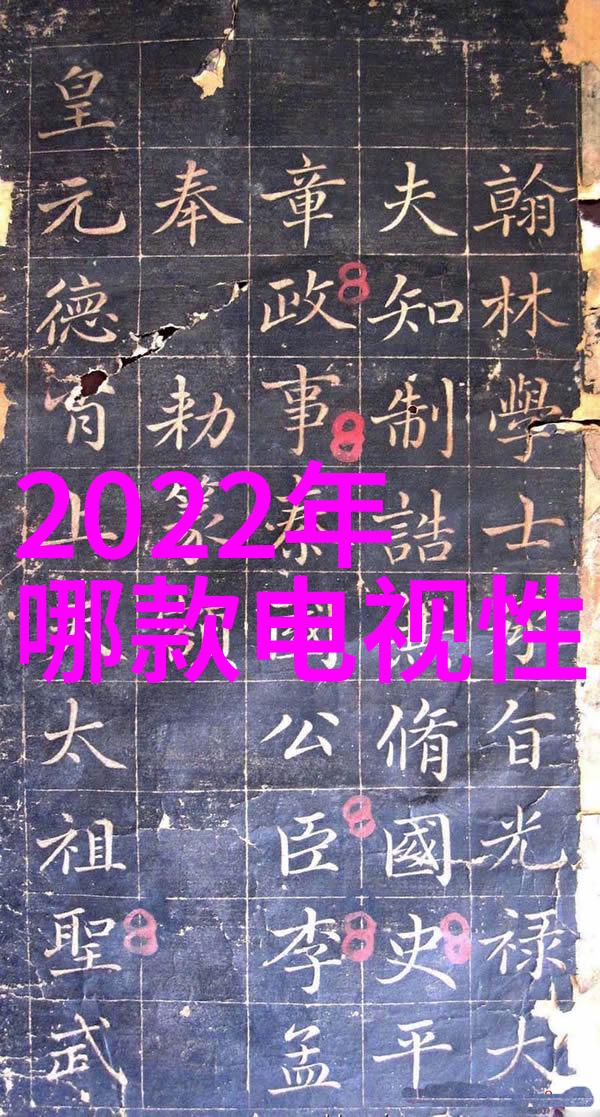 翰林學士旨光禄大
夫知制誥脩國史平
章政事國公臣李孟
奉勅篆
皇元德太祖聖武
2022年
哪款电视性